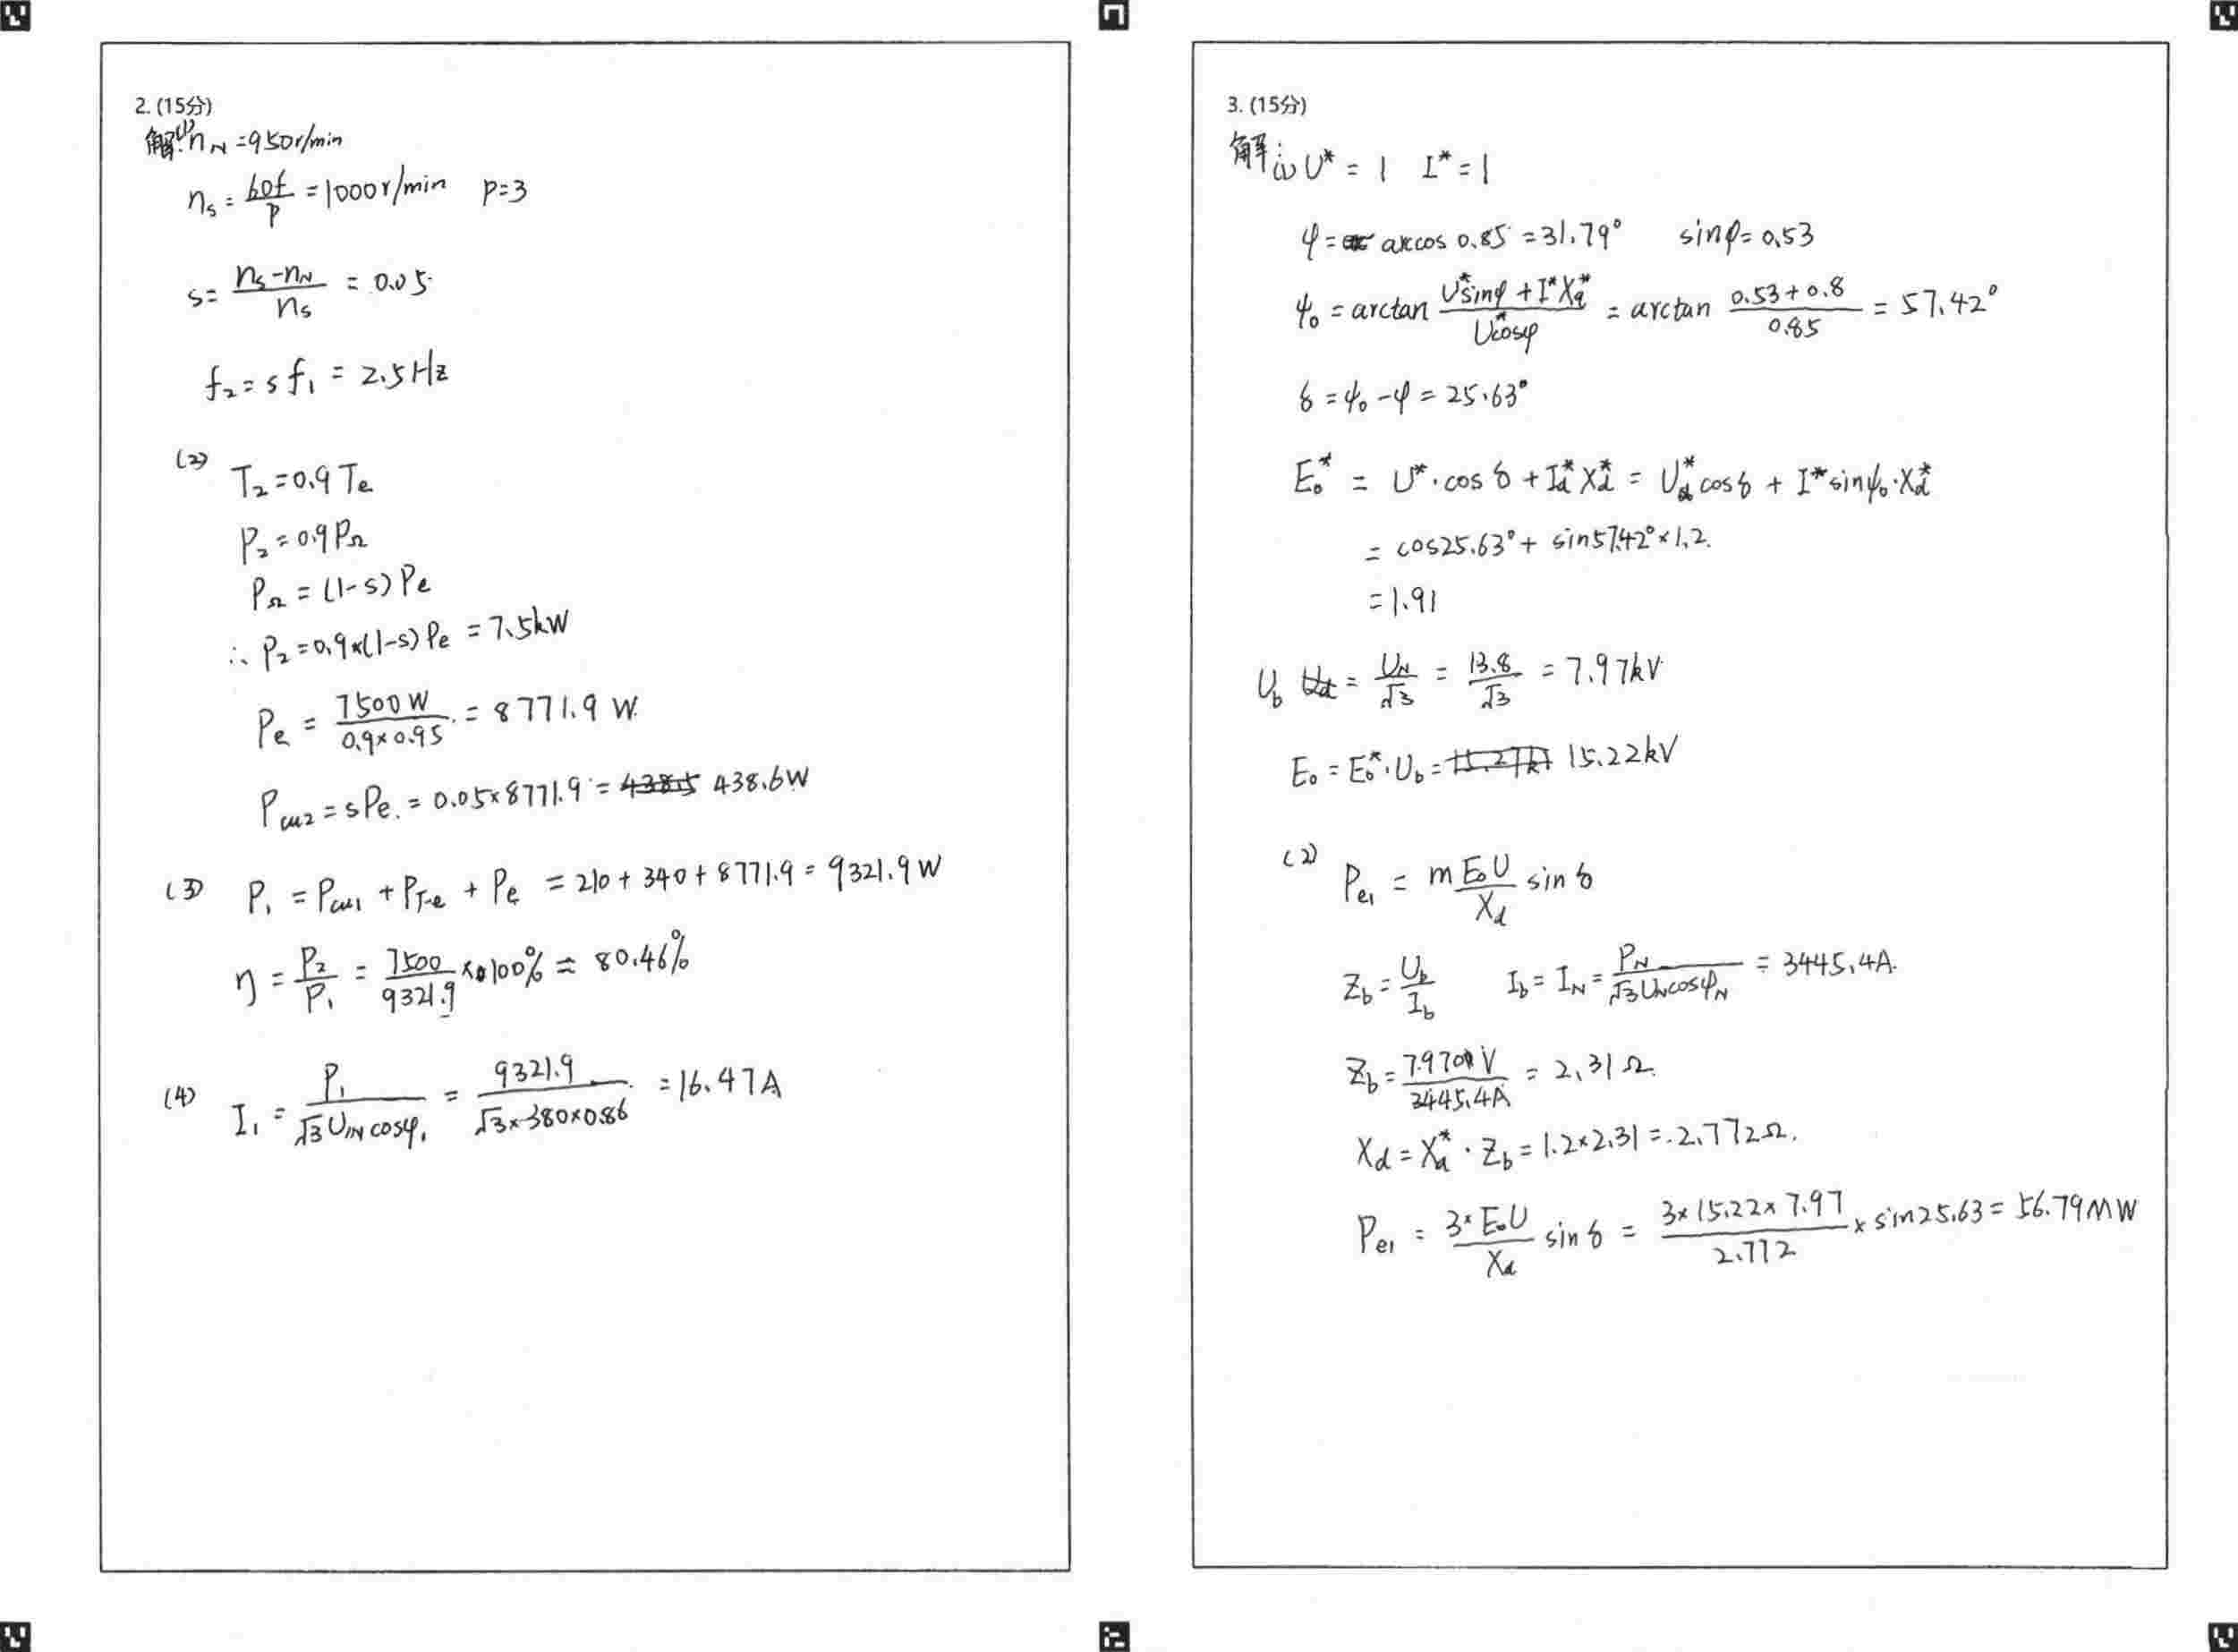 2. (15分)
解:(1) n_N = 950r/min
n_s = 60f/p = 1000r/min p=3
s = (n_s - n_N)/n_s = 0.05
f_2 = s f_1 = 2.5Hz
(2) T_2 = 0.9 T_e
P_2 = 0.9 P_Ω
P_Ω = (1-s) P_e
∴ P_2 = 0.9×(1-s) P_e = 7.5kW
P_e = 7500W/(0.9×0.95) = 8771.9 W
P_cu2 = sP_e = 0.05×8771.9 = 438.6W
(3) P_1 = P_cu1 + P_Fe + P_e = 210 + 340 + 8771.9 = 9321.9W
η = P_2/P_1 = 7500/9321.9 × 100% = 80.46%
(4) I_1 = P_1/(√3 U_1N cosφ_1) = 9321.9/(√3×380×0.86) = 16.47A
3. (15分)
解:(1) U* = 1 I* = 1
φ = arccos 0.85 = 31.79° sinφ = 0.53
ψ_0 = arctan (U*sinφ + I*X_q*)/(U*cosφ) = arctan (0.53+0.8)/0.85 = 57.42°
δ = ψ_0 - φ = 25.63°
E_0* = U*·cosδ + I_d* X_d* = U* cosδ + I* sinψ_0·X_d*
= cos25.63° + sin57.42°×1.2
= 1.91
U_b = U_N/√3 = 13.8/√3 = 7.97kV
E_0 = E_0*·U_b = 15.22kV
(2) P_e1 = m E_0U/X_d sinδ
Z_b = U_b/I_b I_b = I_N = P_N/(√3 U_N cosφ_N) = 3445.4A
Z_b = 7970V/3445.4A = 2.31Ω
X_d = X_d*·Z_b = 1.2×2.31 = 2.772Ω
P_e1 = 3×E_0U/X_d sinδ = (3×15.22×7.97)/2.772 × sin25.63 = 56.79MW